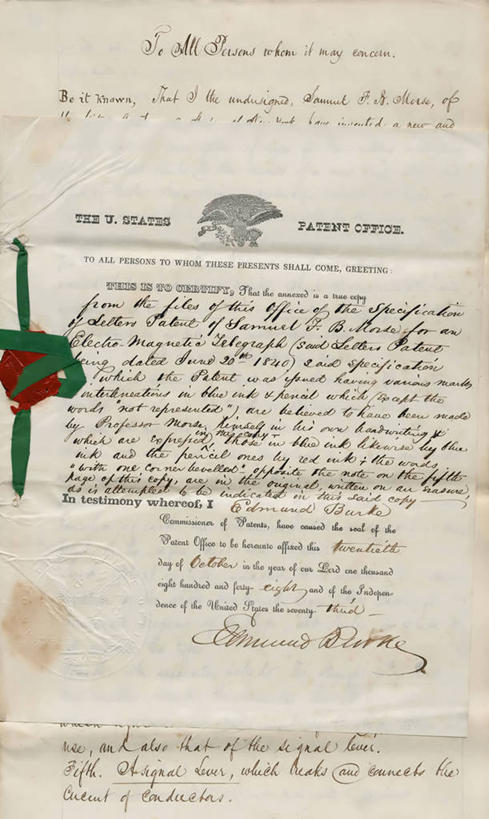 To All Persons whom it may concern.
Be it Known, That I the undersigned, Samuel F. B. Morse, of
have invented a new and
THE U. STATES PATENT OFFICE.
TO ALL PERSONS TO WHOM THESE PRESENTS SHALL COME, GREETING:
THIS IS TO CERTIFY, That the annexed is a true copy
from the files of this Office of the Specification
of Letters Patent of Samuel F. B. Morse for an
Electro-Magnetic Telegraph (said Letters Patent
being dated June 20th 1840) said specification
(which the Patent was issued having various marks,
interlineations in blue ink & pencil which (except the
words "not represented"), are believed to have been made
by Professor Morse himself in his own handwriting &
which are expressed in this copy those in blue ink likewise by blue
ink and the pencil ones by red ink; the words
"with one corner bevelled" opposite the note on the fifth
page of this copy, are in the original, written on an erasure,
as is attempted to be indicated in this said copy—
In testimony whereof, I Edmund Burke
Commissioner of Patents, have caused the seal of the
Patent Office to be hereunto affixed this twentieth
day of October in the year of our Lord one thousand
eight hundred and forty-eight and of the Indepen-
dence of the United States the seventy-third—
Edmund Burke
use, and also that of the signal lever.
Fifth. A signal Lever, which breaks and connects the
Circuit of Conductors.